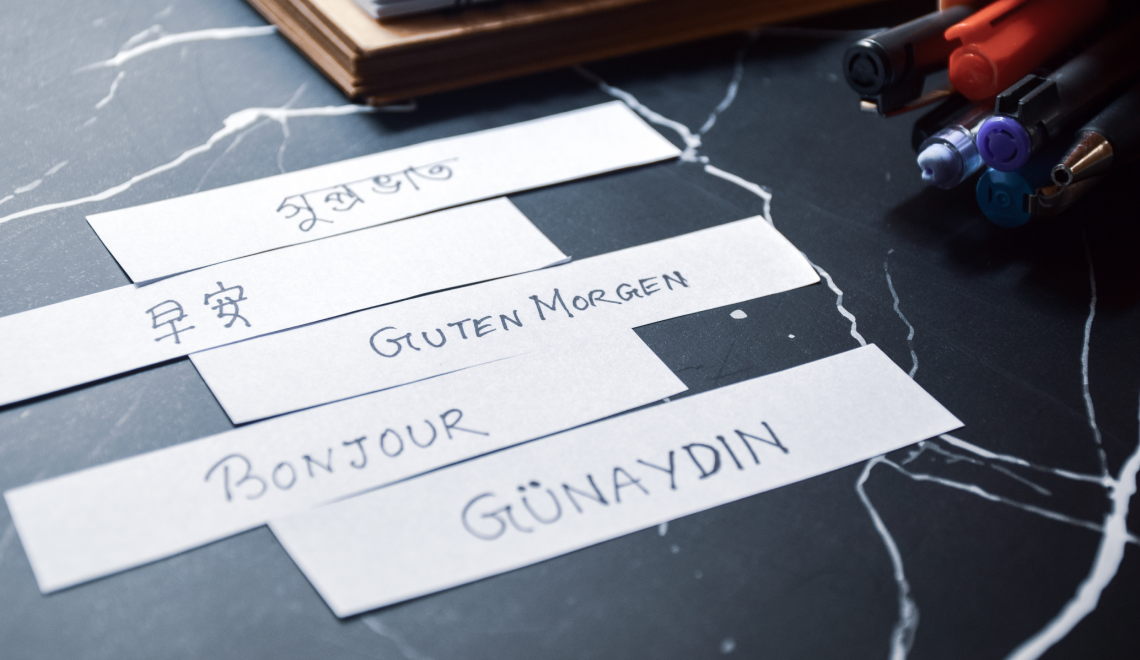 সুপ্রভাত
早安
GUTEN MORGEN
BONJOUR
GÜNAYDIN